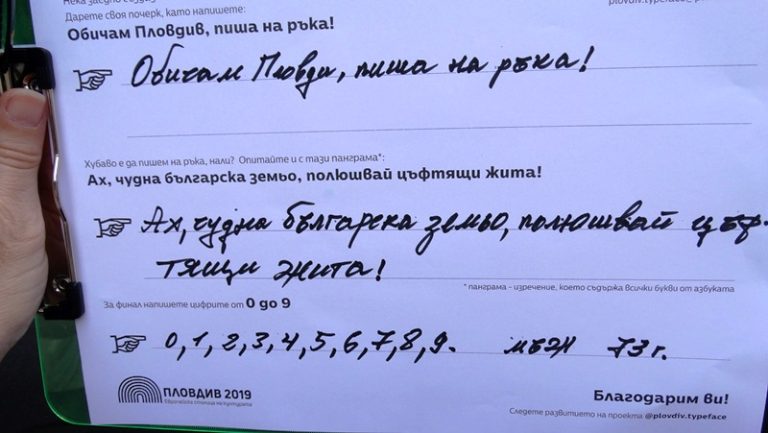 Дарете своя почерк, като напишете:
Обичам Пловдив, пиша на ръка!
Обичам Пловди, пиша на ръка!
Хубаво е да пишем на ръка, нали? Опитайте и с тази панграма*:
Ах, чудна българска земьо, полюшвай цъфтящи жита!
Ах, чудна българска земьо, полюшвай цъф-
тящи жита!
* панграма - изречение, което съдържа всички букви от азбуката
За финал напишете цифрите от 0 до 9
0,1,2,3,4,5,6,7,8,9. мъж 73 г.
ПЛОВДИВ 2019
Европейска столица на културата
Благодарим ви!
Следете развитието на проекта @plovdiv.typeface